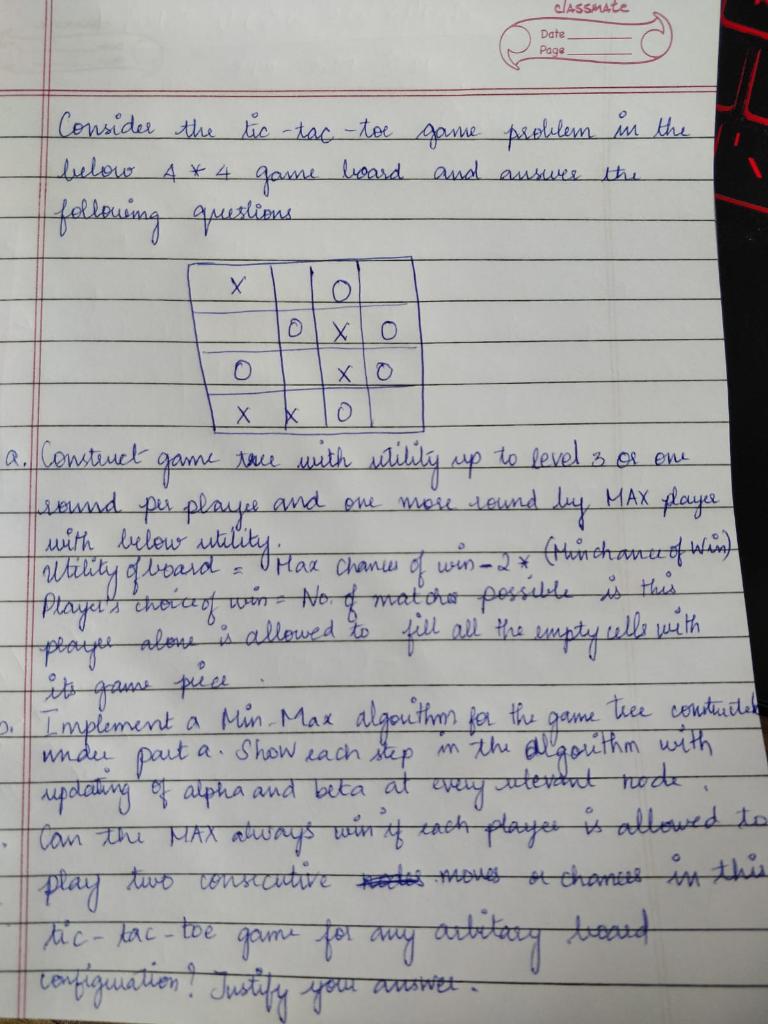 classmate
Date
Page
Consider the tic-tac-toe game problem in the
below 4 * 4 game board and answer the
following questions
X O
O X O
O X O
X X O
a. Construct game tree with utility up to level 3 or one
round per player and one more round by MAX player
with below utility.
Utility of board = Max chance of win - 2 * (Min chance of Win)
Player's choice of win = No. of matches possible is this
player alone is allowed to fill all the empty cells with
its game piece.
b. Implement a Min-Max algorithm for the game tree constructed
under part a. Show each step in the algorithm with
updating of alpha and beta at every relevant node.
. Can the MAX always win if each player is allowed to
play two consecutive moves or chances in this
tic-tac-toe game for any arbitary board
configuration? Justify your answer.